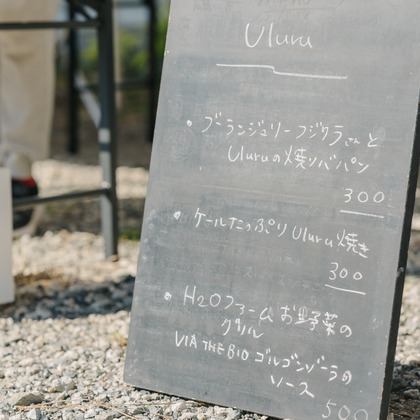 Uluru
・ブーランジュリーフジクラさんと
Uluruの焼リバパン
300
・ケールたっぷりUluru焼き
300
・H2Oファームお野菜の
グリル
VIA THE BIO ゴルゴンゾーラの
ソース
500